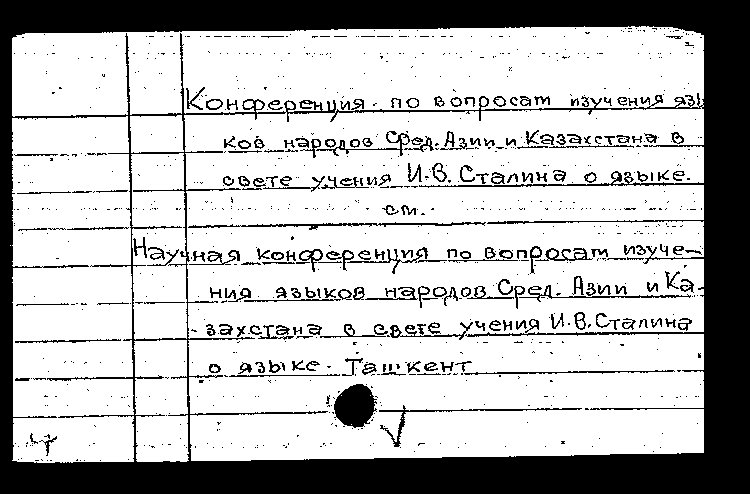 Конференция по вопросам изучения язы
ков народов Сред. Азии и Казахстана в
свете учения И.В. Сталина о языке.
см.
Научная конференция по вопросам изуче-
ния языков народов Сред. Азии и Ка-
захстана в свете учения И.В. Сталина
о языке. Ташкент